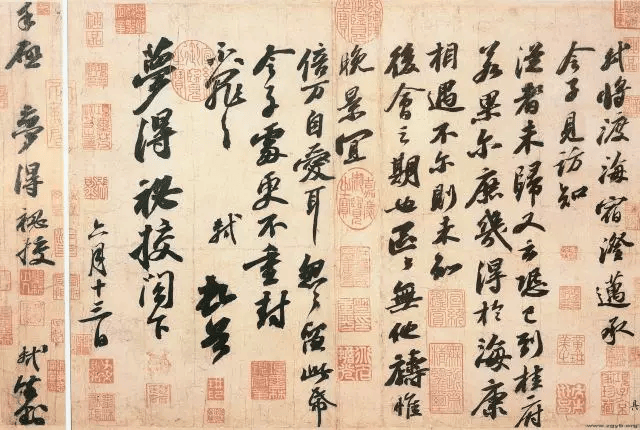 軾將渡海宿澄邁承
令子見訪知
從者未歸又云恐已到桂府
若果尔庶幾得於海康
相遇不尔則未知
後會之期也區々無他禱惟
晚景宜
倍万自愛耳忽々留此帋
令子處更不重封
不罪々
軾 頓首
夢得祕校閣下
六月十三日
手啟 夢得祕校
軾 封